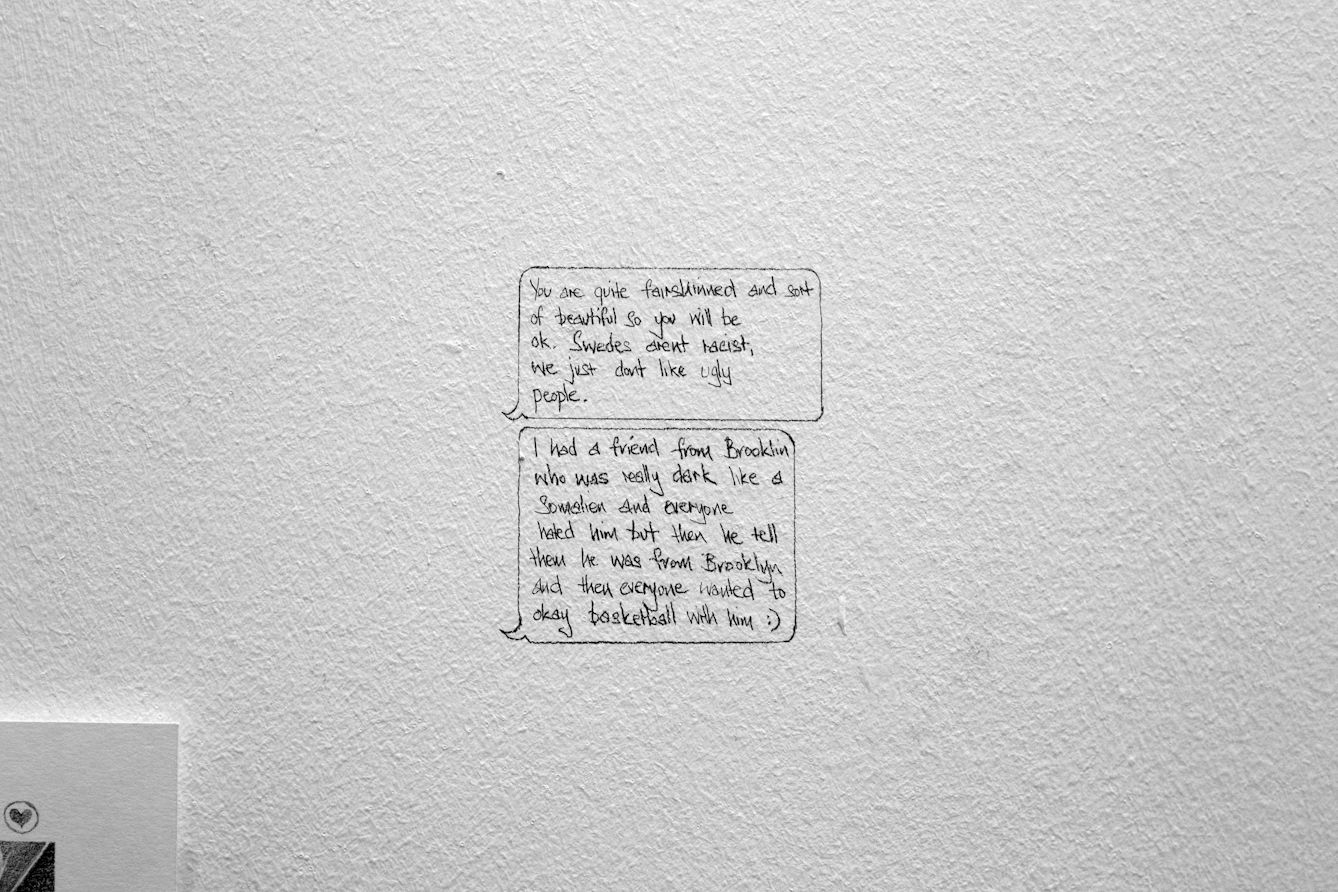 You are quite fairskinned and sort
of beautiful so you will be
ok. Swedes arent racist,
we just dont like ugly
people.
I had a friend from Brooklin
who was really dark like a
Somalien and everyone
hated him but then he tell
them he was from Brooklyn
and then everyone wanted to
okay basketball with him :)